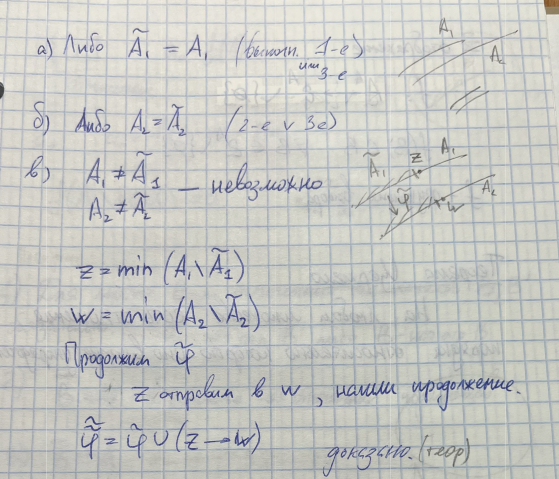 а) Либо Ã₁ = A₁ (выполн. 1-е)
или 3-е
A₁
A₂
б) Либо A₂ = Ã₂ (2-е ∨ 3е)
в) A₁ ≠ Ã₁
A₂ ≠ Ã₂ — невозможно
Ã₁ z A₁
φ̃ w A₂
z = min (A₁ \ Ã₁)
w = min (A₂ \ Ã₂)
Продолжим φ̃
z отправим в w, нашли продолжение.
φ̃̃ = φ̃ ∪ (z → w)
доказано. (теор)